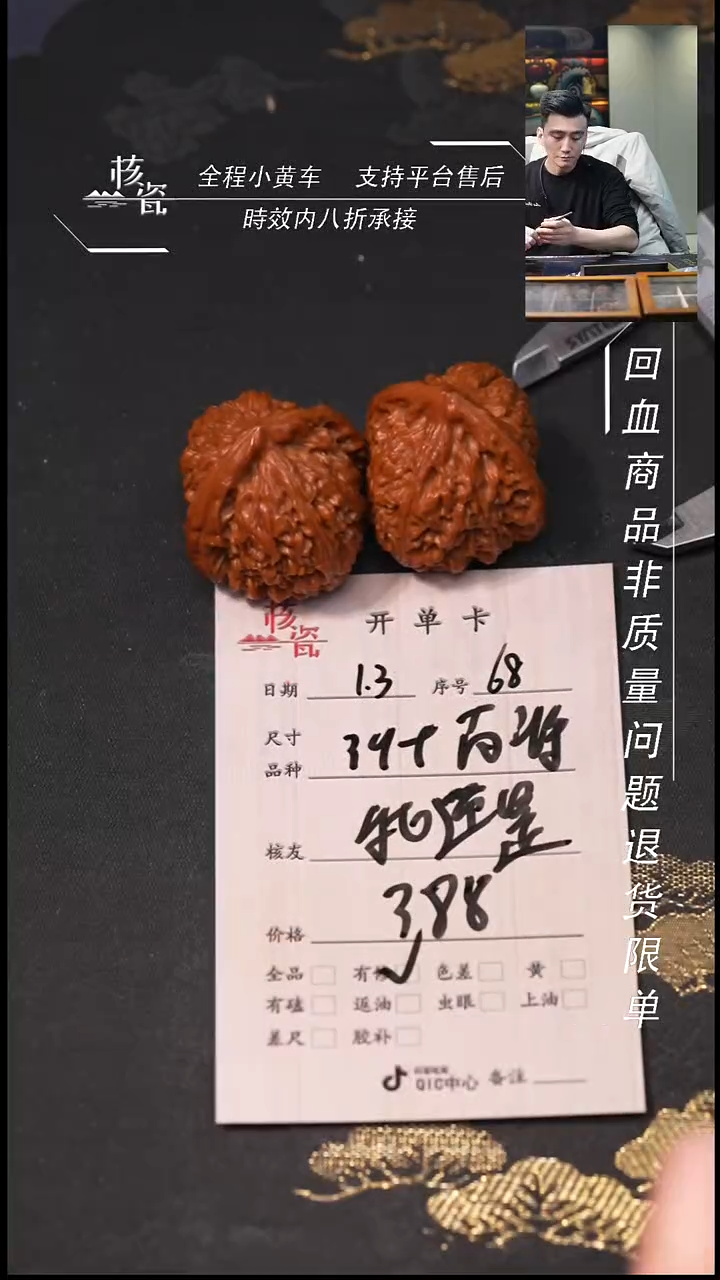 核瓷
全程小黄车 支持平台售后
時效内八折承接
回血商品非质量问题退货限单
核瓷
开单卡
日期 1.3 序号 68
尺寸 39+
品种
核友
价格 388
全品 有修 色差 黄
有磕 返油 虫眼 上油
差尺 胶补
QIC中心 备注